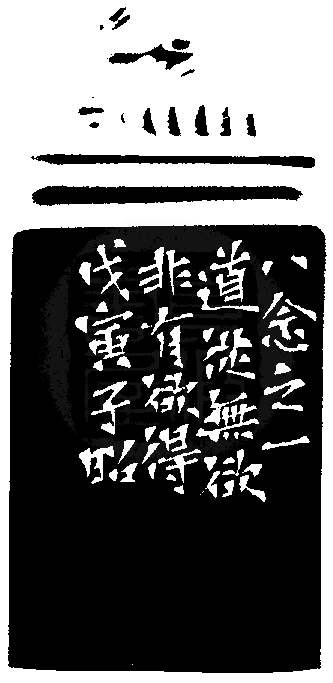 八念之一
道從無欲
非有欲得
戊寅子昭